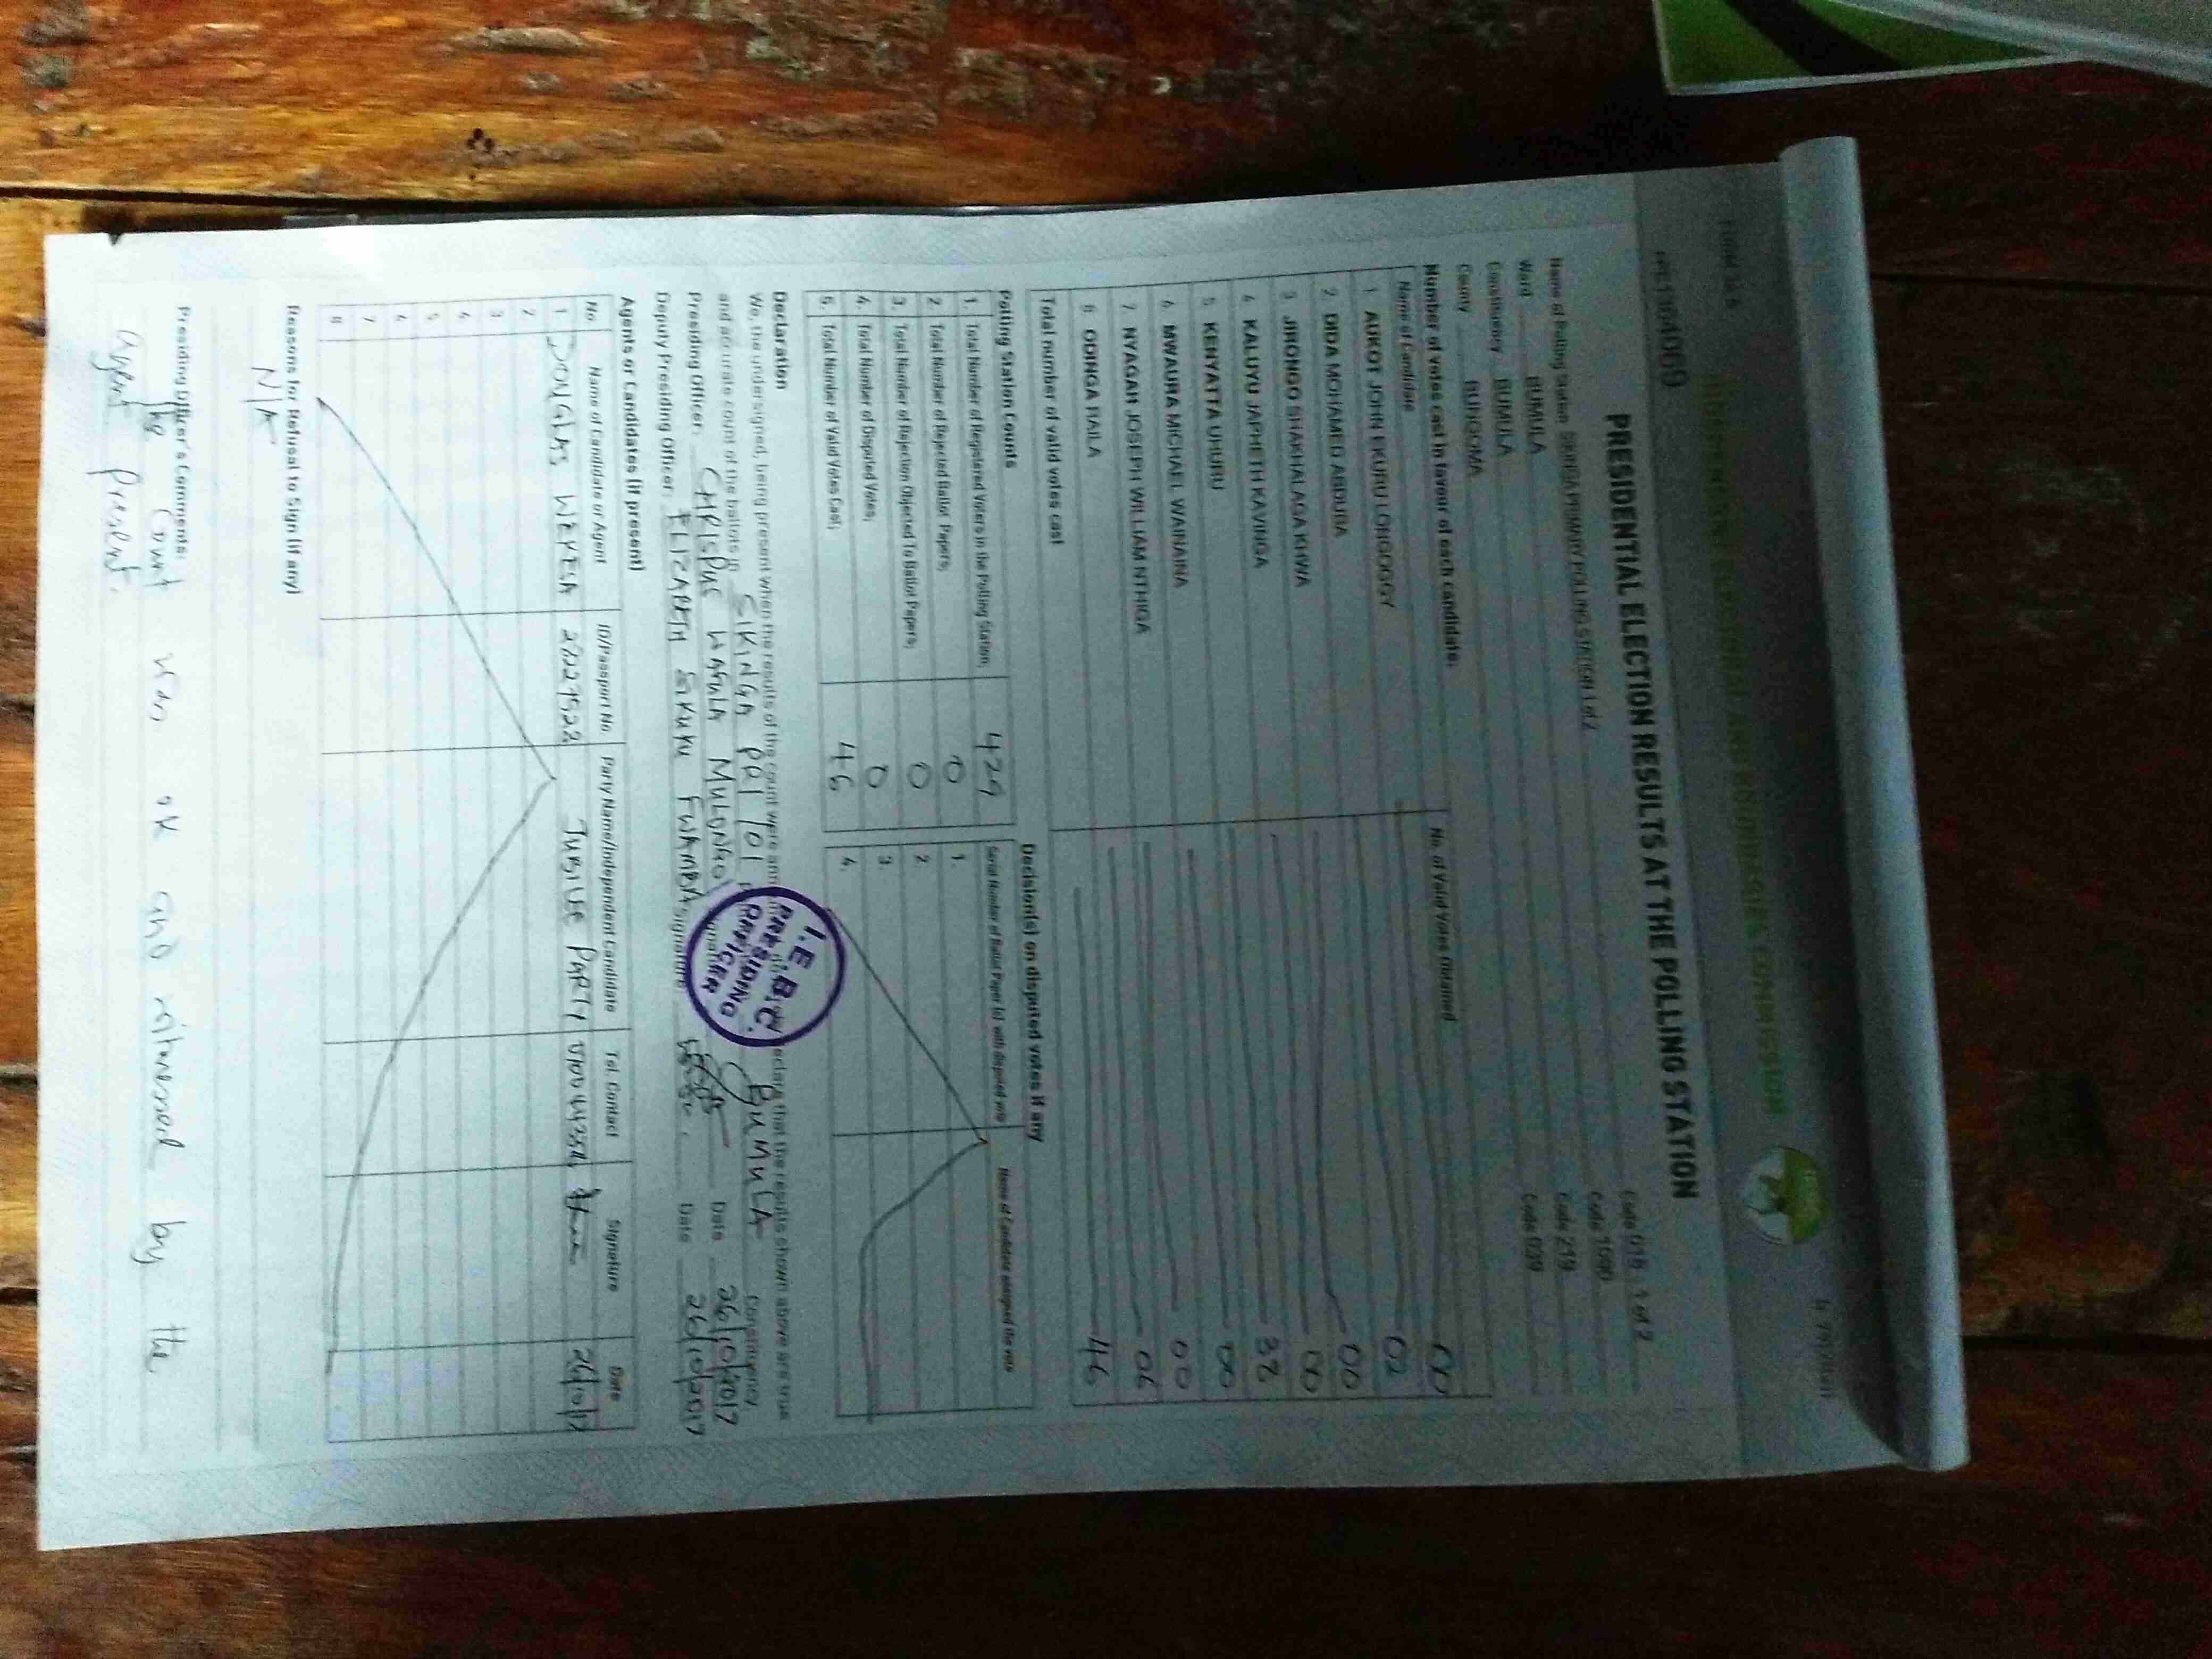 FORM 34 A
INDEPENDENT ELECTORAL AND BOUNDARIES COMMISSION
PRESIDENTIAL ELECTION RESULTS AT THE POLLING STATION
Name of Polling Station SIKINGA PRIMARY POLLING STATION 1 of 2 Code 018 1 of 2
Ward BUMULA Code 1090
Constituency BUMULA Code 219
County BUNGOMA Code 039
Number of votes cast in favour of each candidate:
Name of Candidate No. of Valid Votes Obtained
1 AUKOT JOHN EKURU LONGOGGY 00
2 DIDA MOHAMED ABDUBA 02
3 JIRONGO SHAKHALAGA KHWA 00
4 KALUYU JAPHETH KAVINGA 00
5 KENYATTA UHURU 38
6 MWAURA MICHAEL WAINAINA 00
7 NYAGAH JOSEPH WILLIAM NTHIGA 00
8 ODINGA RAILA 06
Total number of valid votes cast 46
Polling Station Counts
1. Total Number of Registered Voters in the Polling Station; 429
2. Total Number of Rejected Ballot Papers; 0
3. Total Number of Rejection Objected To Ballot Papers; 0
4. Total Number of Disputed Votes; 0
5. Total Number of Valid Votes Cast; 46
Decision(s) on disputed votes if any
Serial Number of Ballot Paper (s) with disputed vote Name of Candidate assigned the vote
1.
2.
3.
4.
Declaration
We, the undersigned, being present when the results of the count were declare that the results shown above are true
and accurate count of the ballots in SIKINGA PRI 101 BUMULA Constituency
Presiding Officer: CHRISPUS Date 26/10/2017
Deputy Presiding Officer: ELIZABETH SIKUKU FWAMBA Signature Date 26/10/2017
I.E.B.C.
PRESIDING
OFFICER
Agents or Candidates (if present)
No. Name of Candidate or Agent ID/Passport No. Party Name/Independent Candidate Tel. Contact Signature Date
1 DOUGLAS WEKESA JUBILEE PARTY 26/10/17
2
3
4
5
6
7
8
Reasons for Refusal to Sign (if any)
N/A
Presiding Officer's Comments:
The count was ok and witnessed by the
agent present.